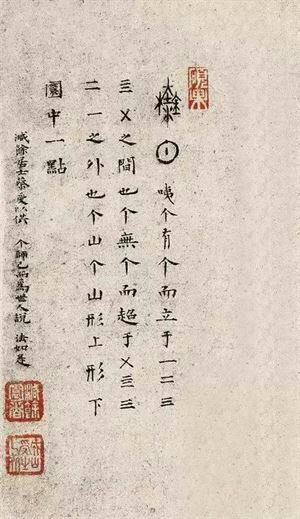 咦个有个而立于一二三
三乂之間也个無个而超于乂三三
二一之外也个山个山形上形下
圜中一點
減餘居士蔡受以供 个師已而為世人說 法如是